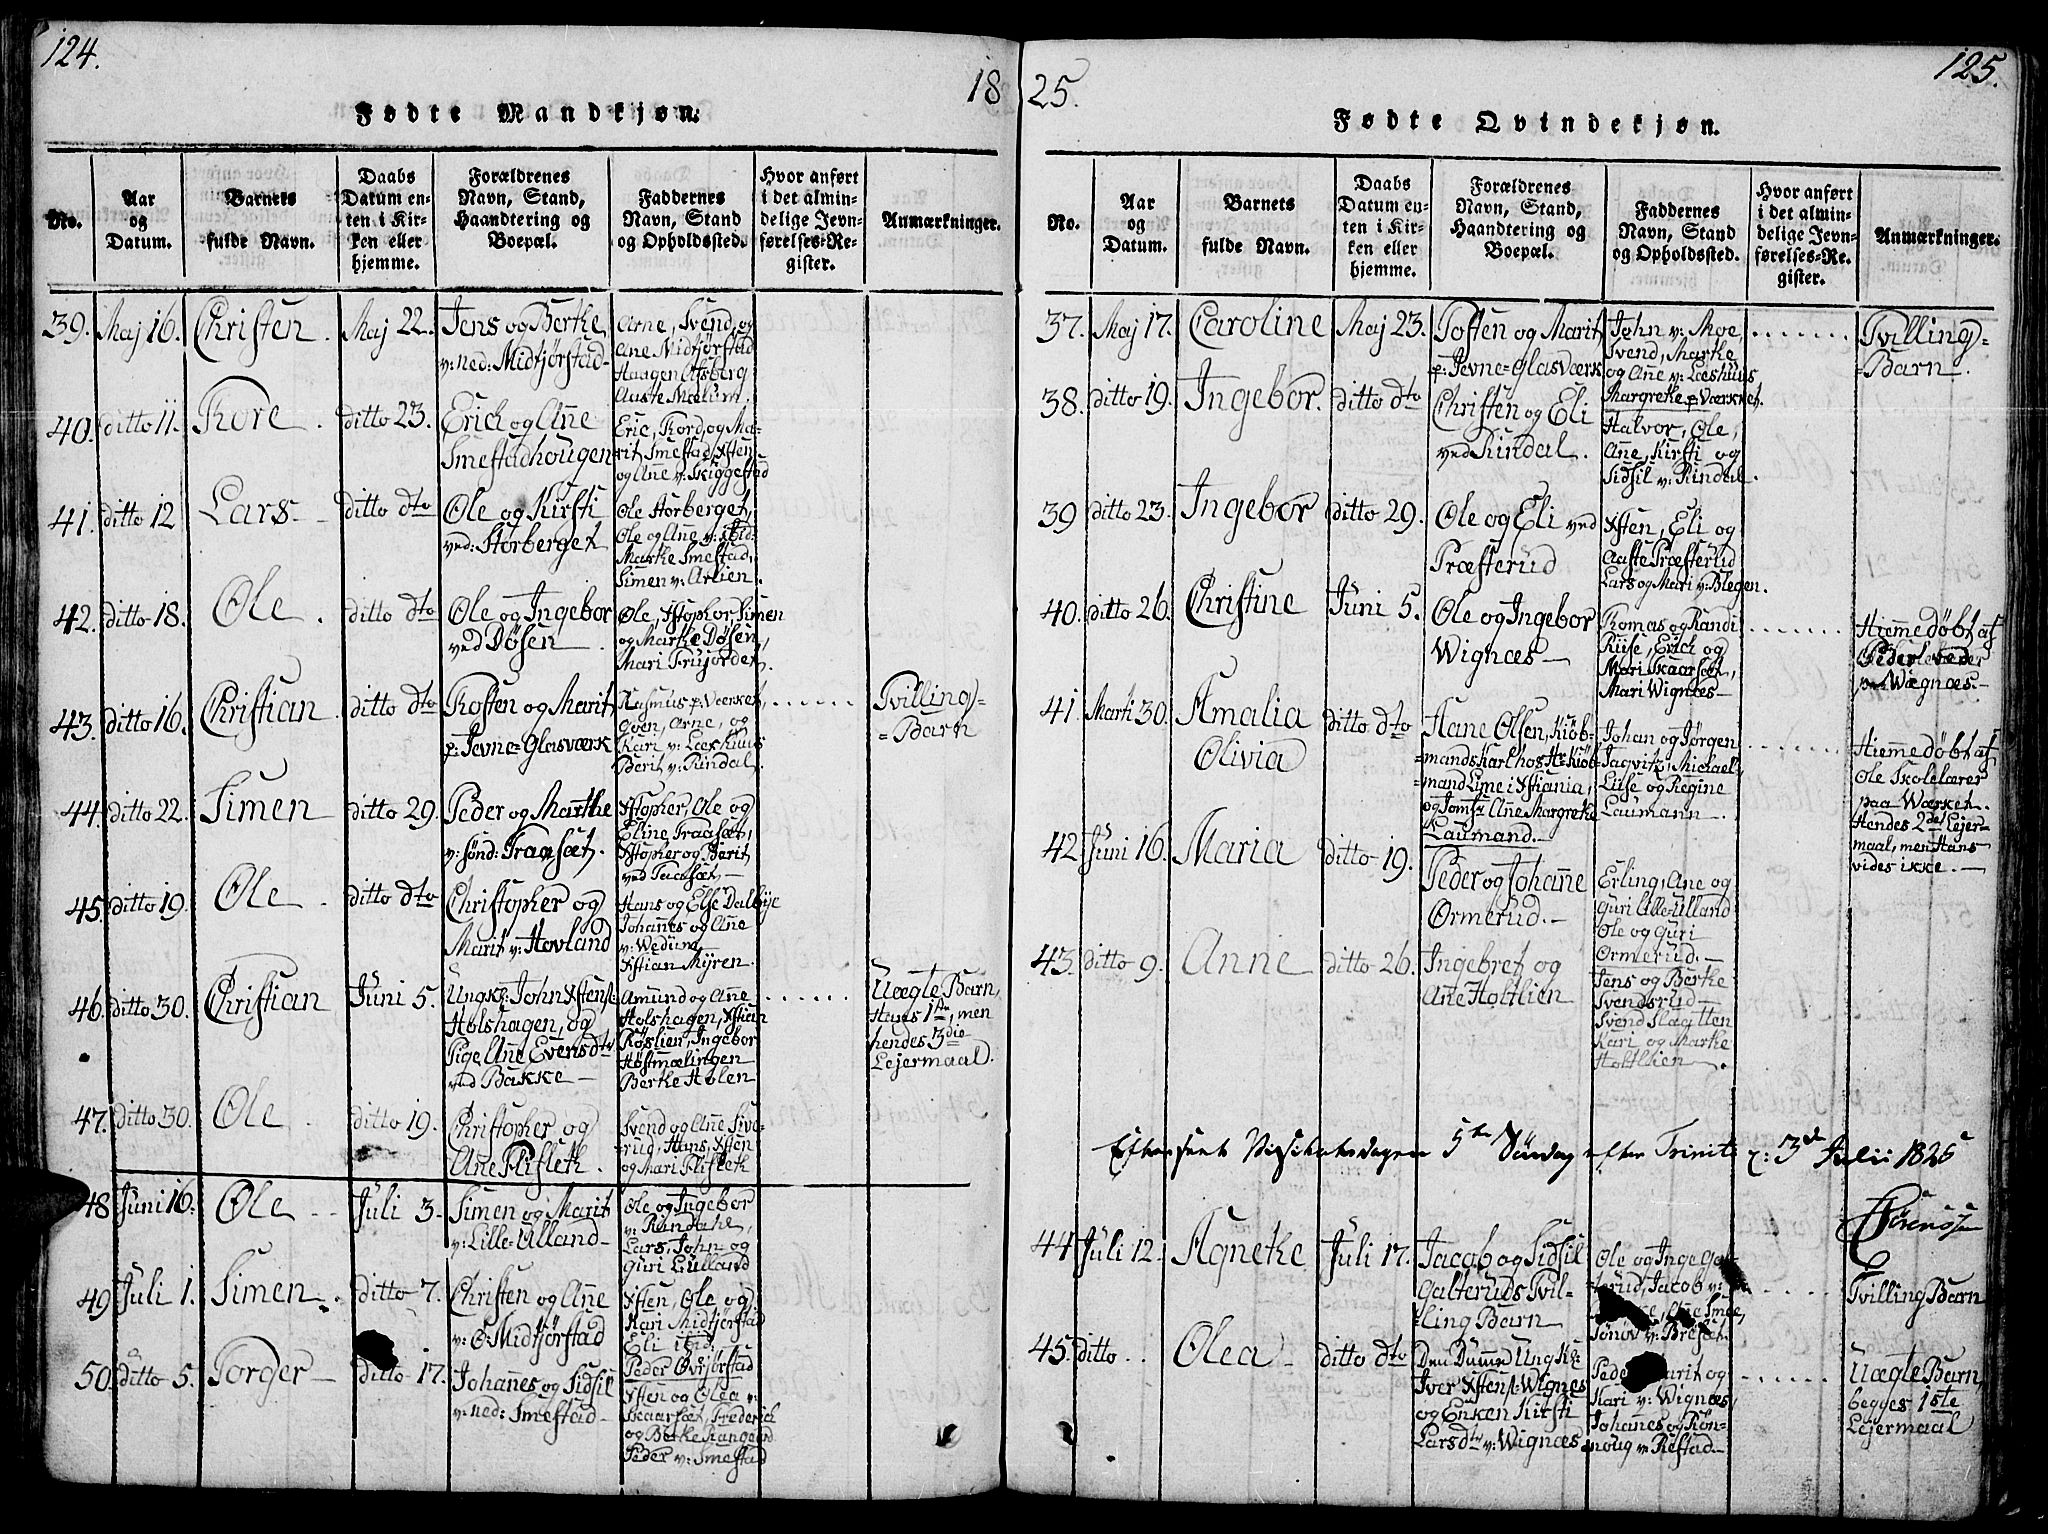 124.
18
Fødte Mandkjøn.
No.
Aar
og
Datum.
Barnets
fulde Navn.
Daabs
Datum en-
ten i Kir-
ken eller
hjemme.
Forældrenes
Navn, Stand,
Haandtering og
Boepæl.
Faddernes
Navn, Stand
og Opholdssted.
Hvor anført
i det almin-
delige Jevn-
førelses-Re-
gister.
Anmærkninger.
39. Maj 16. Christen. Maj 22.
Jens og Berthe
v: ned: Midtjørstad-
Arne, Svend, og
Ane Midtjørstad
Haagen Alsberg
Aaste Mælum.
40. ditto 11. Thore. ditto 23.
Erich og Ane
Smestadhougen
Eric, Thord, og Ma-
rit Smestad, Xsten
og Ane v: Skiggestad
41. ditto 12 Lars- ditto dto
Ole og Kirsti
ved: Storberget
Ole Storberget,
Ole og Ane v:
Marthe Smestad,
Simen v: Arlien.
42. ditto 18. Ole. ditto dto
Ole og Ingebor
ved Døsen.
Ole, Xstopher, Simen
og Marthe Døsen,
Mari Frujordet.
43. ditto 16. Christian. ditto dto
Tosten og Marit
p: Jevne-Glasværk
Rasmus p: Værket,
Goen, Arne, og
Kari v: Leeshuus
Berit v: Rindal.
Tvilling-
-Barn
44. ditto 22. Simen ditto 29.
Peder og Marthe
v: sønd: Traasæt.
Xstopher, Ole og
Eline Traasæt,
Xstopher og Berit
ved Jacosæt-
45. ditto 19. Ole. ditto dto
Christopher og
Marit v: Hovland
Hans og Else Dalbye
Johanes og Ane
v: Wedum,
Xstian Myren.
46. ditto 30. Christian Juni 5.
Ungk: John Xstens:
Holshagen, og
Pige Ane Evensdtr
ved Bakke-
Amund og Ane
Holshagen, Xstian
Røslien, Ingebor
Høstmælingen
Berthe Holen
Uægte Barn,
Hans 1ste, men
hendes 3die
Lejermaal.
47. ditto 30. Ole. ditto 19.
Christopher og
Ane Flifleth.
Svend og Ane Sive-
rud, Hans, Xsten
og Mari Flifleth
48 Juni 16. Ole- Juli 3.
Simen og Marit
v: Lille-Ulland-
Ole og Ingebor
v: Rindahl,
Lars, John og
Guri L:Ulland
49 Juli 1. Simen. ditto 7.
Christen og Ane
v: Ø: Midtjørstad
Xsten, Ole og
Kari Midtjørstad
Eli itid.
50. ditto 5. Torger- ditto 17.
Johanes og Sidsil
v: ned: Smestad-
Peder Øvrjørstad
Xsten og Olea v:
Skaarsæt, Frederich
og Berthe Kangerud
Peder v: Smestad
25.
125.
Fødte Qvindekjøn.
No.
Aar
og
Datum.
Barnets
fulde Navn.
Daabs
Datum en-
ten i Kir-
ken eller
hjemme.
Forældrenes
Navn, Stand,
Haandtering og
Boepæl.
Faddernes
Navn, Stand
og Opholdssted.
Hvor anført
i det almin-
delige Jevn-
førelses-Re-
gister.
Anmærkninger.
37. Maj 17. Caroline Maj 23.
Tosten og Marit
p: Jevne-Glasværk
John v: Moe,
Svend, Marthe
og Ane v: Leeshuus
Margrethe p Værket.
Tvilling-
-Barn.
38. ditto 19. Ingebor. ditto dto
Christen og Eli
ved Rindal.
Halvor, Ole,
Ane, Kirsti og
Sidsil v: Rindal.
39 ditto 23. Ingebor ditto 29.
Ole og Eli ved
Præsterud
Xsten, Eli og
Aaste Præsterud
Lars og Mari v: Blegen.
40. ditto 26. Christine Juni 5.
Ole og Ingebor
Wignæs-
Tomas og Randi
Riise, Erich og
Mari Skaarsæt,
Mari Wignæs-
Hiemedøbt af
Peder
Wægnæs.-
41. Marti 30. Amalia
Olivia ditto dto
Hane Olsen, Kiøb-
-mandskarl hos Hr Kiøb-
-mand Lyne i Xstiania,
og Jomfr Ane Margrethe
Laumand.-
Johan og Jørgen
Jagvitz, Michael,
Luise og Regine
Laumann.
Hiemedøbt af
Ole Skolelærer
paa Wærket.
Hendes 2det Lejer-
maal, men Hans
vides ikke.-
42 Juni 16. Maria ditto 19.
Peder og Johanne
Ormerud.-
Erling, Ane og
Guri Lille-Ulland
Ole og Guri
Ormerud.-
43. ditto 9. Anne ditto 26.
Ingebret og
Ane Holtlien
Jens og Berthe
Svendsrud-
Svend Slaatten
Kari og Marthe
Holtlien.
Efterseet Visitatsdagen 5te Søndag efter Trinit: 3d Julii 1825
44 Juli 12. Agnethe Juli 17.
Jacob og Sidsil
Galteruds Tvil-
-ling Barn
Ole og Inge Gal-
-terud, Jacob v:
Ane Smee,
Sønøv v: Bræsæt.
Tvilling Barn
45. ditto.. Olea- ditto dto
Den Dumme Ungk:
Iver Xstens: Wignes
og Enken Kirsti
Larsdtr v: Wignæs
Peder Marit og
Kari v: Wignæs,
Johanes og Røn-
-noug v: Refstad.-
Uægte Barn,
begges 1ste
Lejermaal